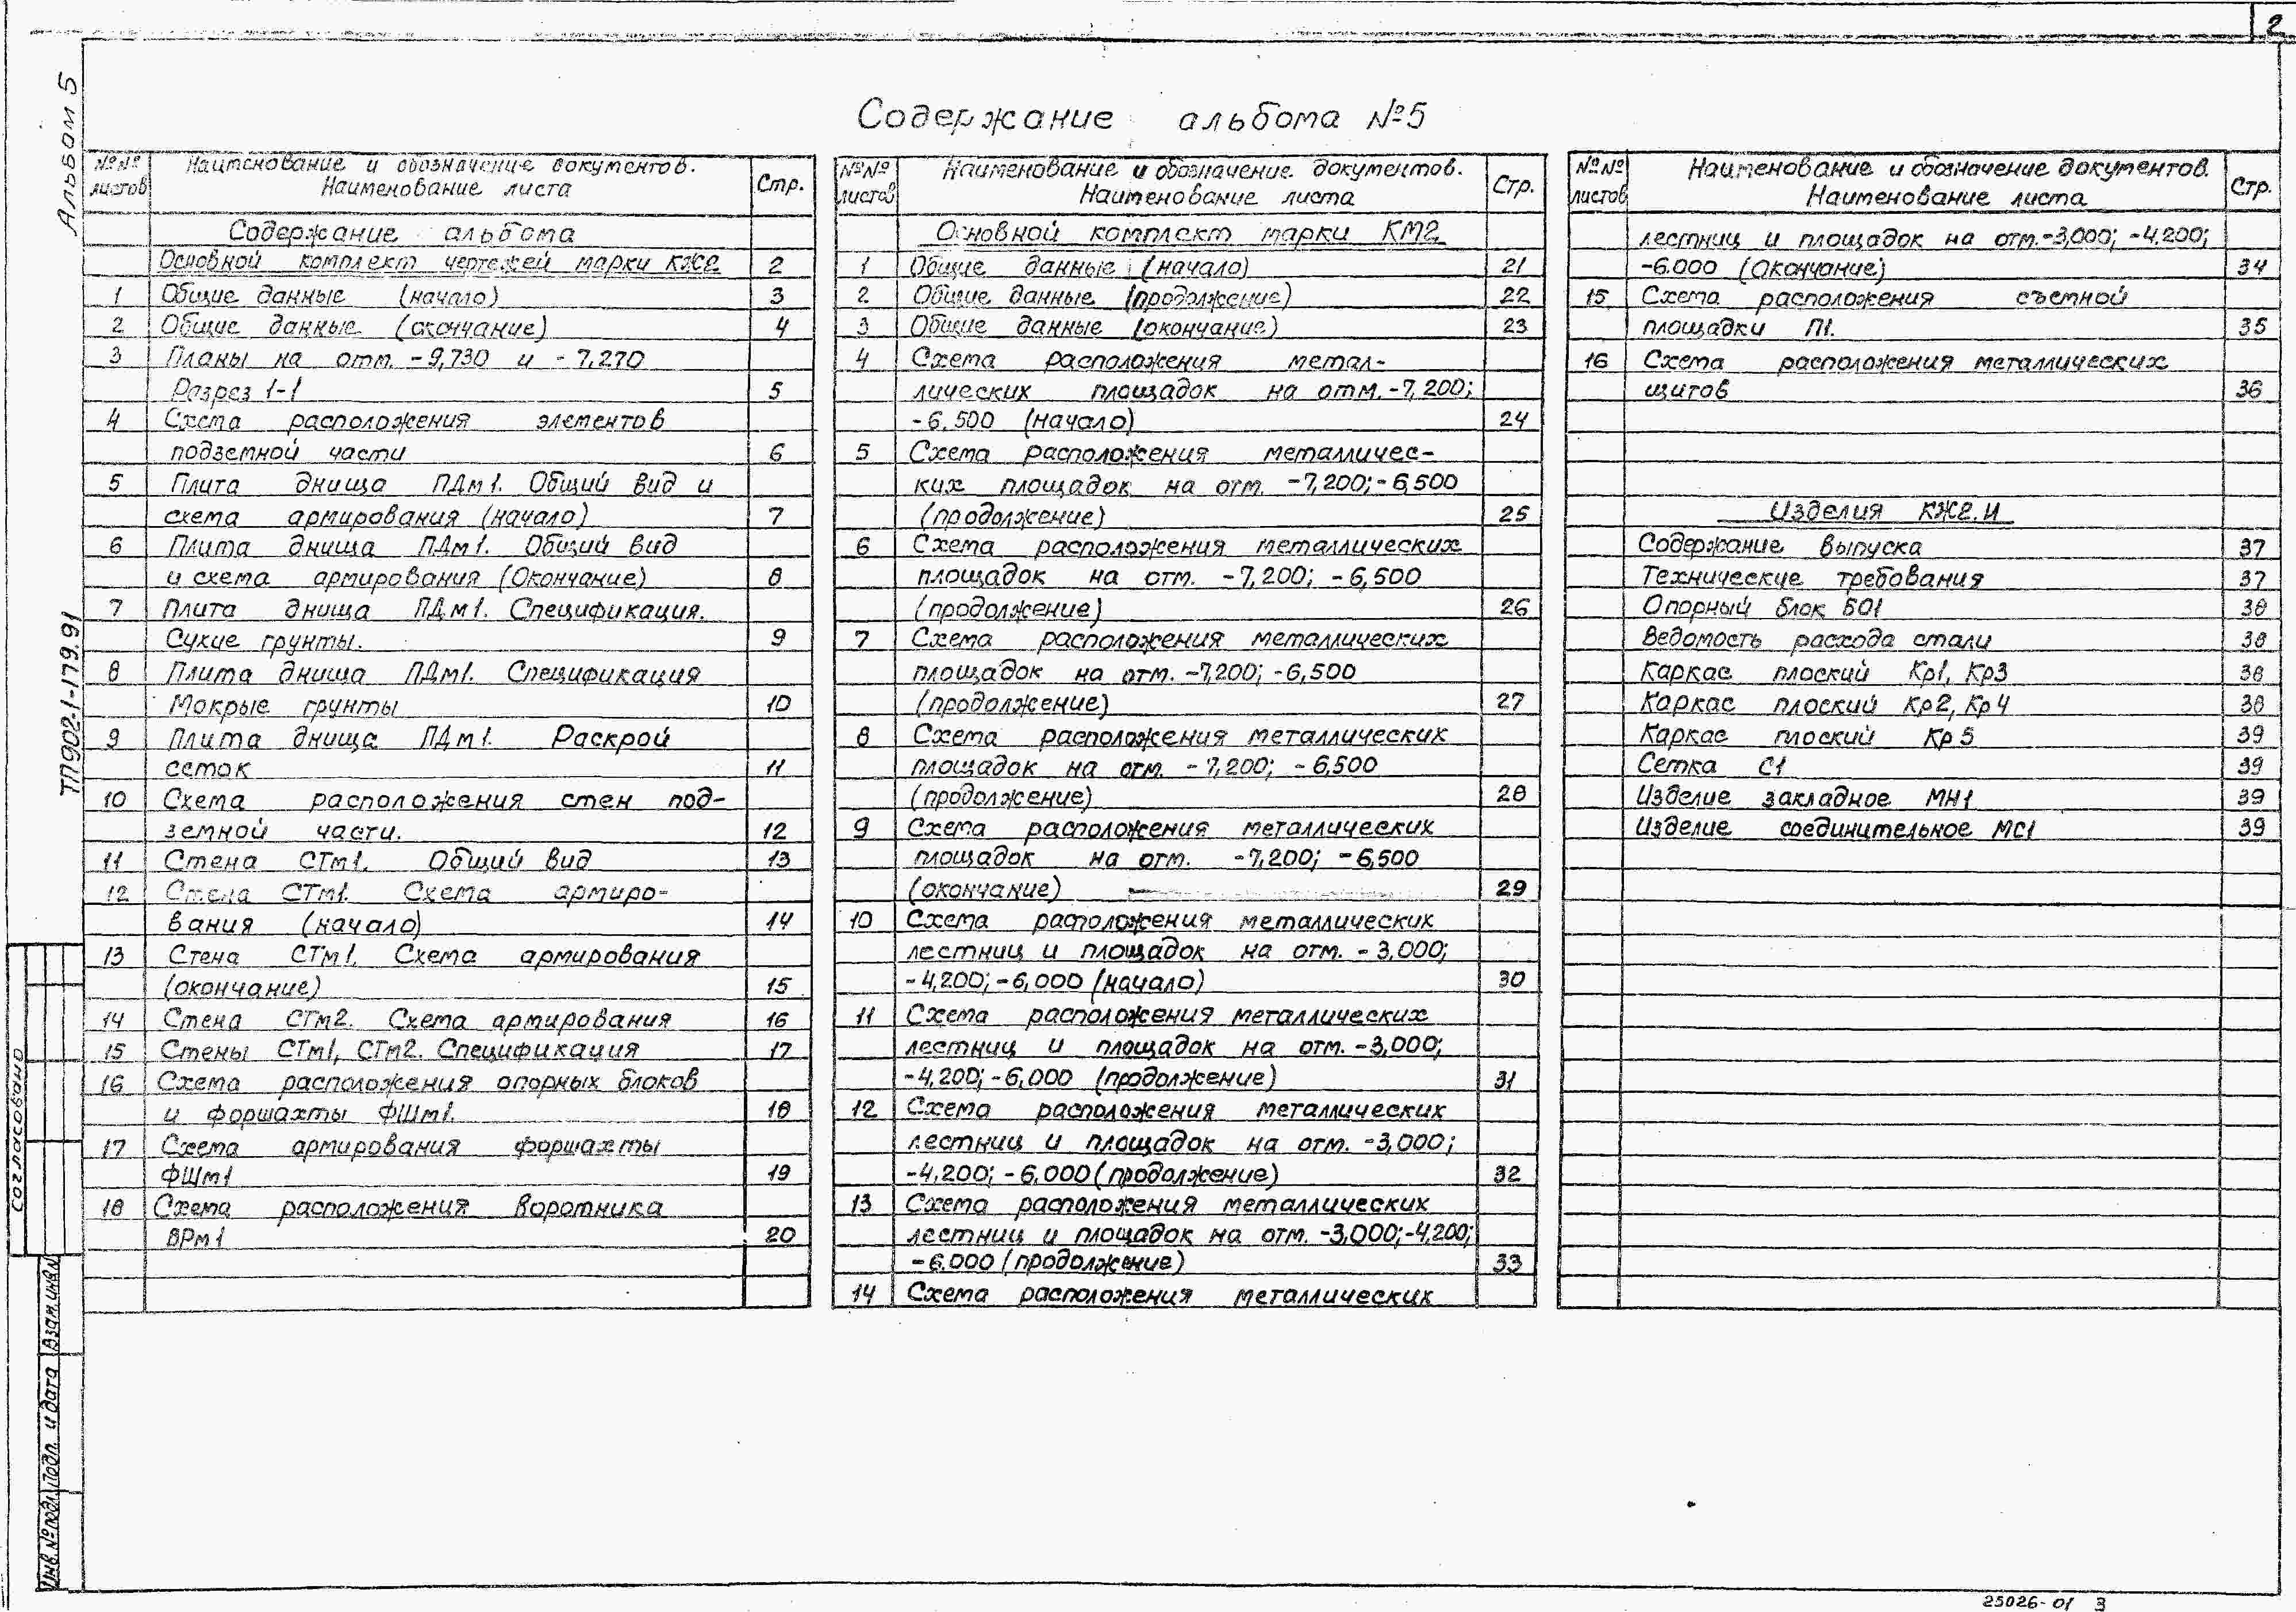 2
Альбом 5
ТП902-1-179.91
Содержание альбома №5
№№ листов | Наименование и обозначение документов. Наименование листа | Стр.
Содержание альбома
Основной комплект чертежей марки КЖ2 2
1 Общие данные (начало) 3
2 Общие данные (окончание) 4
3 Планы на отм. -9,730 и -7,270
Разрез 1-1 5
4 Схема расположения элементов
подземной части 6
5 Плита днища ПДм1. Общий вид и
схема армирования (начало) 7
6 Плита днища ПДм1. Общий вид
и схема армирования (Окончание) 8
7 Плита днища ПДм1. Спецификация.
Сухие грунты. 9
8 Плита днища ПДм1. Спецификация
Мокрые грунты 10
9 Плита днища ПДм1. Раскрой
сеток 11
10 Схема расположения стен под-
земной части. 12
11 Стена СТм1. Общий вид 13
12 Стена СТм1. Схема армиро-
вания (начало) 14
13 Стена СТм1. Схема армирования
(окончание) 15
14 Стена СТм2. Схема армирования 16
15 Стены СТм1, СТм2. Спецификация 17
16 Схема расположения опорных блоков
и форшахты ФШм1. 18
17 Схема армирования форшахты
ФШм1 19
18 Схема расположения воротника
ВРм1 20
№№ листов | Наименование и обозначение документов. Наименование листа | Стр.
Основной комплект марки КМ2
1 Общие данные (начало) 21
2 Общие данные (продолжение) 22
3 Общие данные (окончание) 23
4 Схема расположения метал-
лических площадок на отм. -7,200;
-6,500 (начало) 24
5 Схема расположения металличес-
ких площадок на отм. -7,200; -6,500
(продолжение) 25
6 Схема расположения металлических
площадок на отм. -7,200; -6,500
(продолжение) 26
7 Схема расположения металлических
площадок на отм. -7,200; -6,500
(продолжение) 27
8 Схема расположения металлических
площадок на отм. -7,200; -6,500
(продолжение) 28
9 Схема расположения металлических
площадок на отм. -7,200; -6,500
(окончание) 29
10 Схема расположения металлических
лестниц и площадок на отм. -3,000;
-4,200; -6,000 (начало) 30
11 Схема расположения металлических
лестниц и площадок на отм. -3,000;
-4,200; -6,000 (продолжение) 31
12 Схема расположения металлических
лестниц и площадок на отм. -3,000;
-4,200; -6,000 (продолжение) 32
13 Схема расположения металлических
лестниц и площадок на отм. -3,000; -4,200;
-6.000 (продолжение) 33
14 Схема расположения металлических
№№ листов | Наименование и обозначение документов. Наименование листа | Стр.
лестниц и площадок на отм. -3,000; -4,200;
-6.000 (Окончание) 34
15 Схема расположения съемной
площадки П1. 35
16 Схема расположения металлических
щитов 36
Изделия КЖ2.И
Содержание выпуска 37
Технические требования 37
Опорный блок БО1 38
Ведомость расхода стали 38
Каркас плоский Кр1, Кр3 38
Каркас плоский Кр2, Кр4 38
Каркас плоский Кр5 39
Сетка С1 39
Изделие закладное МН1 39
Изделие соединительное МС1 39
Согласовано
Взам.инв.№
Подп. и дата
Инв.№подл.
25026-01 3